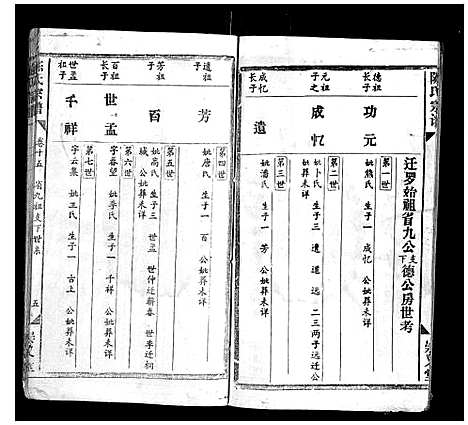 陳氏宗譜
迁罗始祖省九公支下德公房世考
德祖长子
功元
第一世
姚熊氏 生子一 成忆 公姚葬未详
元祖之子
成忆
第二世
姚卜氏 生子三 遺 遠 二三两子迁公
成忆长子
遺
第三世
姚潘氏 生子一 芳 公姚葬未详
遺祖子
芳
第四世
姚唐氏 生子一 百 公姚葬未详
芳祖子
百
第五世
姚高氏 生子三 世孟 世仲迁蕲春 世季迁祠
公姚葬未详
百祖长子
世孟
第六世
字春望 姚李氏 生子一 千祥 公姚葬未详
世孟祖子
千祥
第七世
字云景 姚王氏 生子一 古上 公姚葬未详
宗譜
卷十五 省九祖支下世系
五